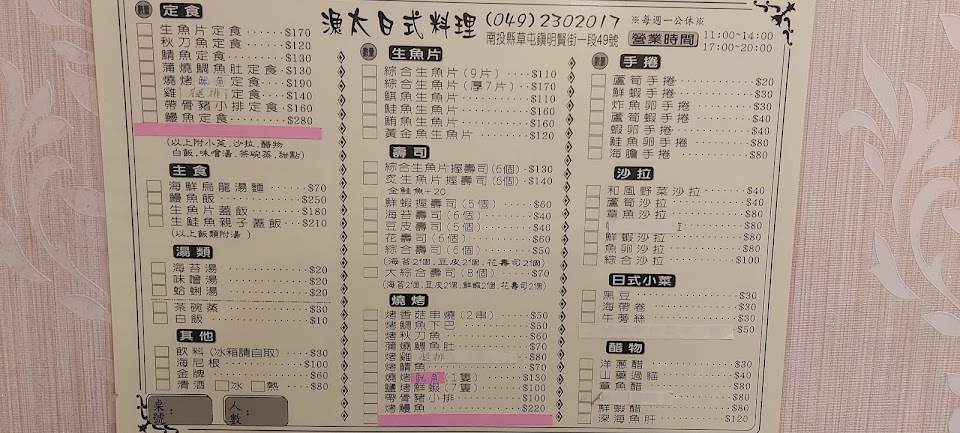 漁太日式料理 (049)2302017 ※每週一公休※
南投縣草屯鎮明賢街一段49號 營業時間 11:00~14:00
17:00~20:00
數量 定食
生魚片定食 $170
秋刀魚定食 $130
鯖魚定食 $130
蒲燒鯛魚肚定食 $130
燒烤魷魚定食 $190
雞腿排定食 $140
帶骨豬小排定食 $160
鰻魚定食 $280
(以上附小菜,沙拉,醋物
白飯,味噌湯,茶碗蒸,甜點)
主食
海鮮烏龍湯麵 $70
鰻魚飯 $250
生魚片蓋飯 $180
生鮭魚親子蓋飯 $210
(以上飯類附湯)
湯類
海苔湯 $20
味噌湯 $20
蛤蜊湯 $20
茶碗蒸 $30
白飯 $10
其他
飲料(冰箱請自取) $30
海尼根 $100
金牌 $60
清酒 冰 熱 $80
桌號:
人數:
數量 生魚片
綜合生魚片(9片) $110
綜合生魚片(厚7片) $170
旗魚生魚片 $110
鮭魚生魚片 $160
鮪魚生魚片 $160
黃金魚生魚片 $120
壽司
綜合生魚片握壽司(6個) $130
炙生魚片握壽司(6個) $140
全鮭魚+20
鮮蝦握壽司(5個) $60
海苔壽司(6個) $40
豆皮壽司(5個) $40
花壽司(6個) $60
綜合壽司(6個) $50
(海苔2個,豆皮2個,花壽司2個)
大綜合壽司(8個) $70
(海苔2個,豆皮2個,鮮蝦2個,花壽司2個)
燒烤
烤香菇串燒(2串) $50
烤鯛魚下巴 $50
烤秋刀魚 $60
蒲燒鯛魚肚 $70
烤雞腿排 $80
烤鯖魚 $70
燒烤魷魚(1隻) $130
鹽烤鮮蝦(7隻) $100
帶骨豬小排 $100
烤鰻魚 $220
數量 手捲
蘆筍手捲 $20
鮮蝦手捲 $30
炸魚卵手捲 $30
蘆筍蝦手捲 $40
蝦卵手捲 $40
鮭魚卵手捲 $80
海膽手捲 $80
沙拉
和風野菜沙拉 $40
蘆筍沙拉 $40
章魚沙拉 $80
$80
鮮蝦沙拉 $80
魚卵沙拉 $80
綜合沙拉 $100
日式小菜
黑豆 $30
海帶卷 $30
牛蒡絲 $30
$50
醋物
洋蔥醋 $30
山藥過貓 $40
章魚醋 $80
$80
鮮蝦醋 $80
深海魚肝 $80